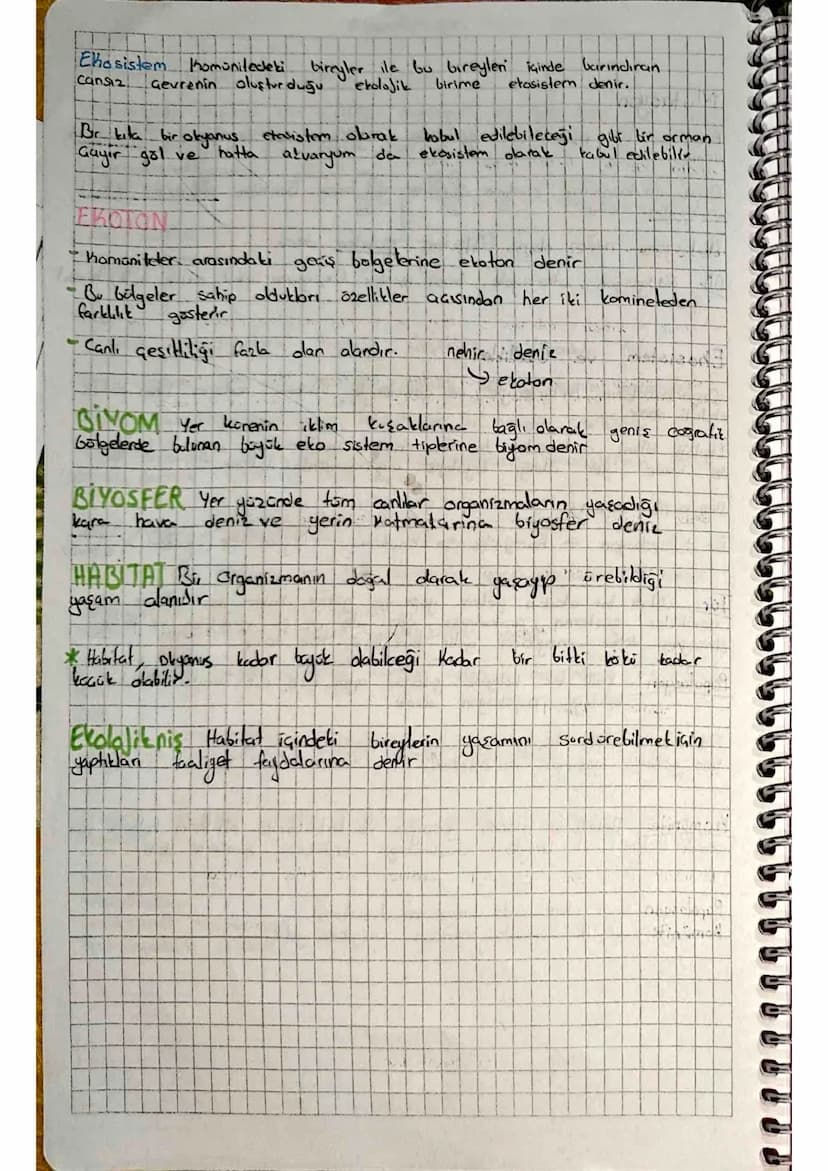 Ekosistem Komünitedeki bireyler ile bu bireyleri içinde barındıran
cansız çevrenin oluşturduğu ekolojik birime ekosistem denir.
Bir kıta bir okyanus ekosistem olarak kabul edilebileceği gibi bir orman
Çayır göl ve hatta akvaryum da ekosistem olarak kabul edilebilir
EKOTON
- Komüniteler arasındaki geçiş bölgelerine ekoton denir
- Bu bölgeler sahip oldukları özellikler açısından her iki komineteden
farklılık gösterir
- Canlı çeşitliliği fazla olan alandır. nehir : deniz
↳ ekoton
BİYOM Yer kürenin iklim kuşaklarına bağlı olarak geniş coğrafik
bölgelerde bulunan büyük eko sistem tiplerine biyom denir
BİYOSFER Yer yüzünde tüm canlılar organizmaların yaşadığı
kara hava deniz ve yerin katmalarına biyosfer deniz
HABİTAT Bir organizmanın doğal olarak yaşayıp ürebildiği
yaşam alanıdır
* Habitat, okyanus kadar büyük olabilceği kadar bir bitki kökü kadar
küçük olabilir.
Ekolojik niş Habitat içindeki bireylerin yaşamını sürdürebilmek için
yaptıkları faaliyet faydalarına denir